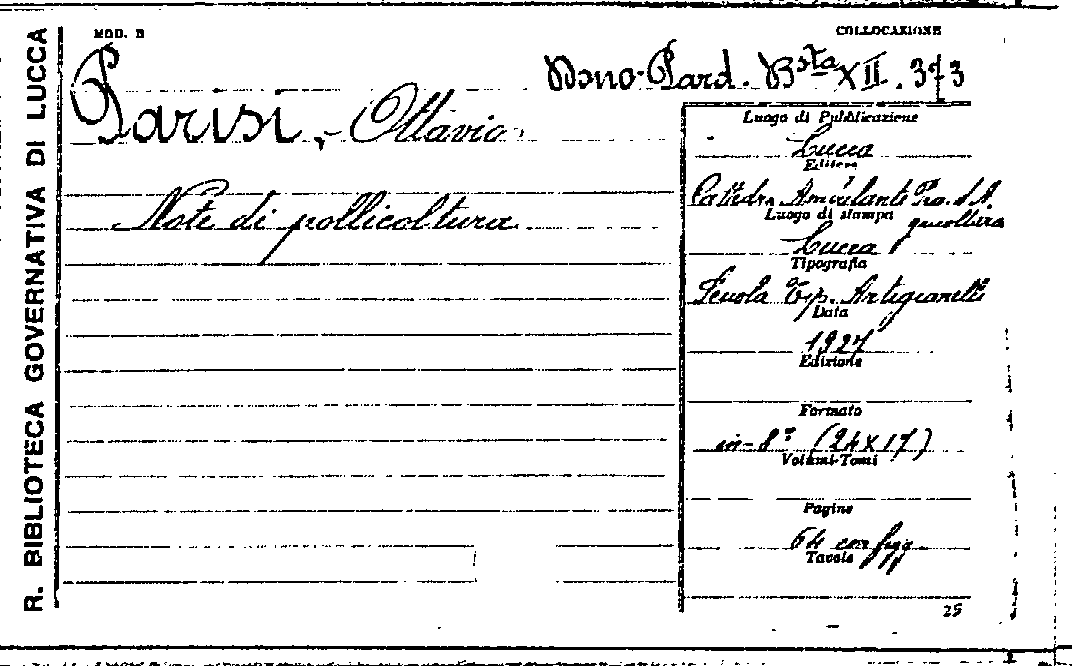 R. BIBLIOTECA GOVERNATIVA DI LUCCA
MOD. B
COLLOCAZIONE
Dono-Pard. Bsta XII. 373
Parisi, Ottavio
Note di pollicoltura
Luogo di Pubblicazione
Lucca
Editore
Cattedra Ambulante
Luogo di stampa
Lucca
Tipografia
Scuola Tip. Artigianelli
Data
1927
Edizione
Formato
in-8º (24X17)
Volumi-Tomi
Pagine
64 con figg.
Tavole
25